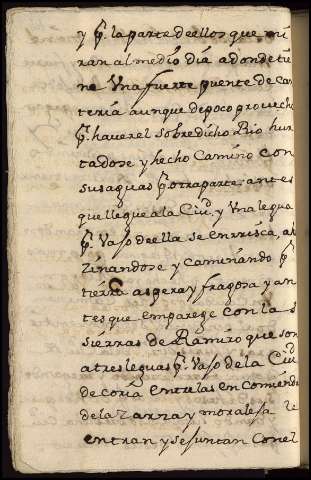 y pr. la parte de ellos que mi
ran al medio dia adonde tie
ne Una fuerte puente de can
teria aunque de poco provecho
pr. haver el sobre dicho Rio hur
tadose y hecho Camino con
sus aguas pr. otra parte, antes
que llegue a la Ciud. y Una legua
pr. Vaso de ella se enrrisca, a
Zinandose y caminando pr.
tierra aspera y fragosa y an
tes que emparege con las
sierras de Ramiro que son
a tres leguas pr. Vaso de la Ciud.
de coria Entre las en comiend
de la Zarza y moraleja
entran y se juntan Con el